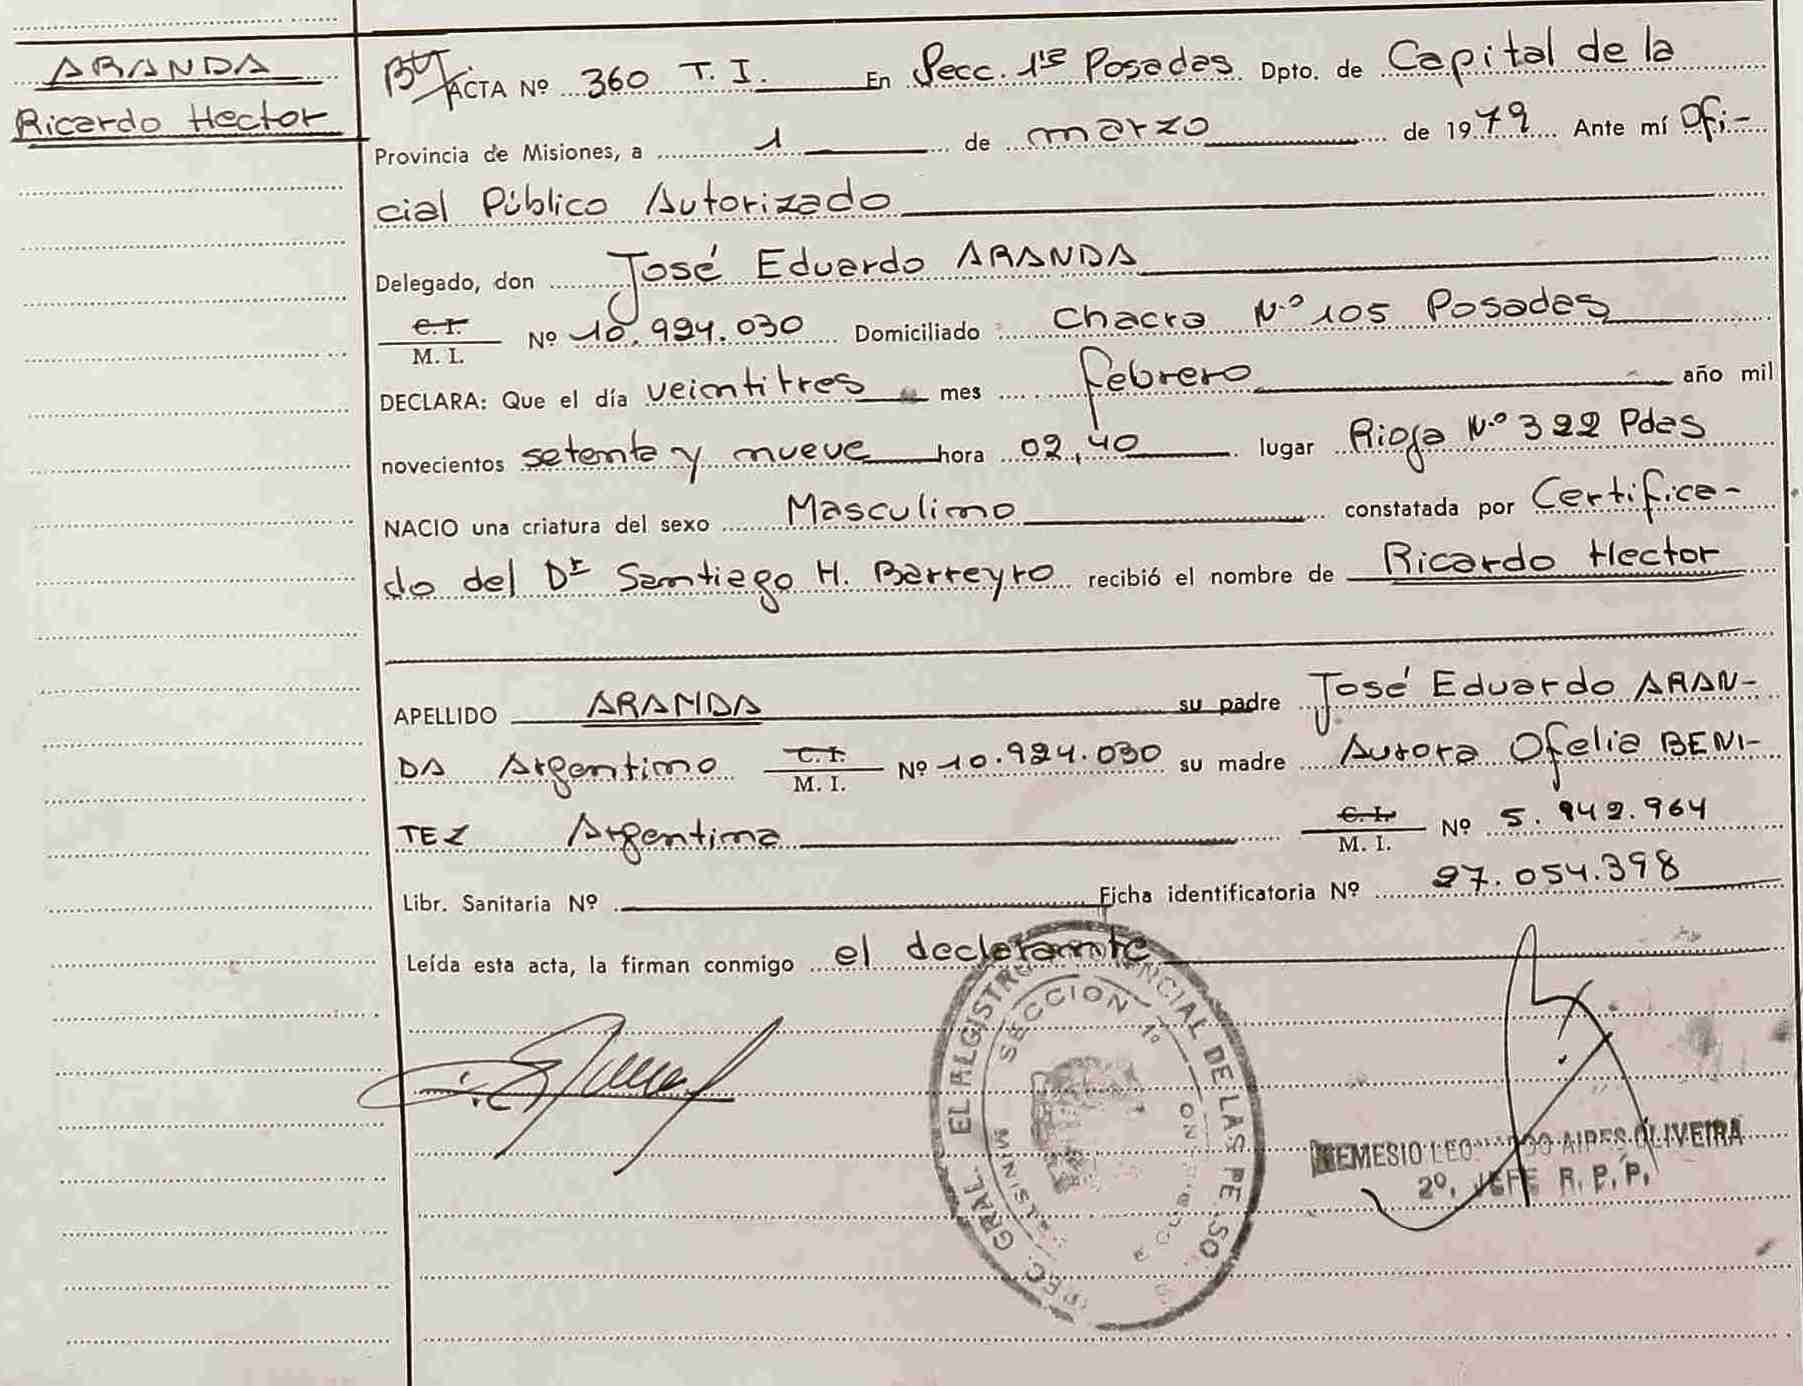 ARANDA
Ricardo Hector
ACTA Nº 360 T. I. En Secc. 1ra Posadas Dpto. de Capital de la
Provincia de Misiones, a 1 de marzo de 1979 Ante mí Ofi-
cial Público Autorizado
Delegado, don José Eduardo ARANDA
C. I.
M. I. Nº 10.924.030 Domiciliado Chacra N.º 105 Posadas
DECLARA: Que el día veintitres mes febrero año mil
novecientos setenta y nueve hora 02,40 lugar Rioja N.º 322 Pdas
NACIO una criatura del sexo Masculino constatada por Certifica-
do del Dr Santiago H. Barreyro recibió el nombre de Ricardo Hector
APELLIDO ARANDA su padre José Eduardo ARAN-
DA Argentino C. I. M. I. Nº 10.924.030 su madre Aurora Ofelia BENI-
TEZ Argentina C. I. M. I. Nº 5.942.964
Libr. Sanitaria Nº Ficha identificatoria Nº 27.054.398
Leída esta acta, la firman conmigo el declarante
SECCION 1º
DE LAS
GRAL.
NEMESIO AIRES OLIVEIRA
2º. JEFE R. P. P.